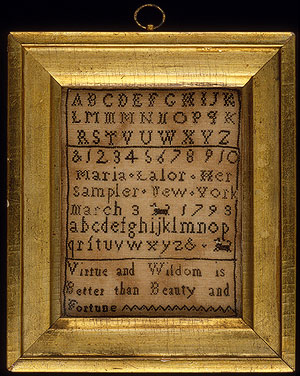 ABCDEFGHIJK
LMMNNOPQK
RSTVUVWXYZ
&12345678910
Maria Lalor Her
Sampler New York
March 3 1793
abcdefghijklmnop
qrſtuvwxyz&
Virtue and Wildom is
Better than Beauty and
Fortune